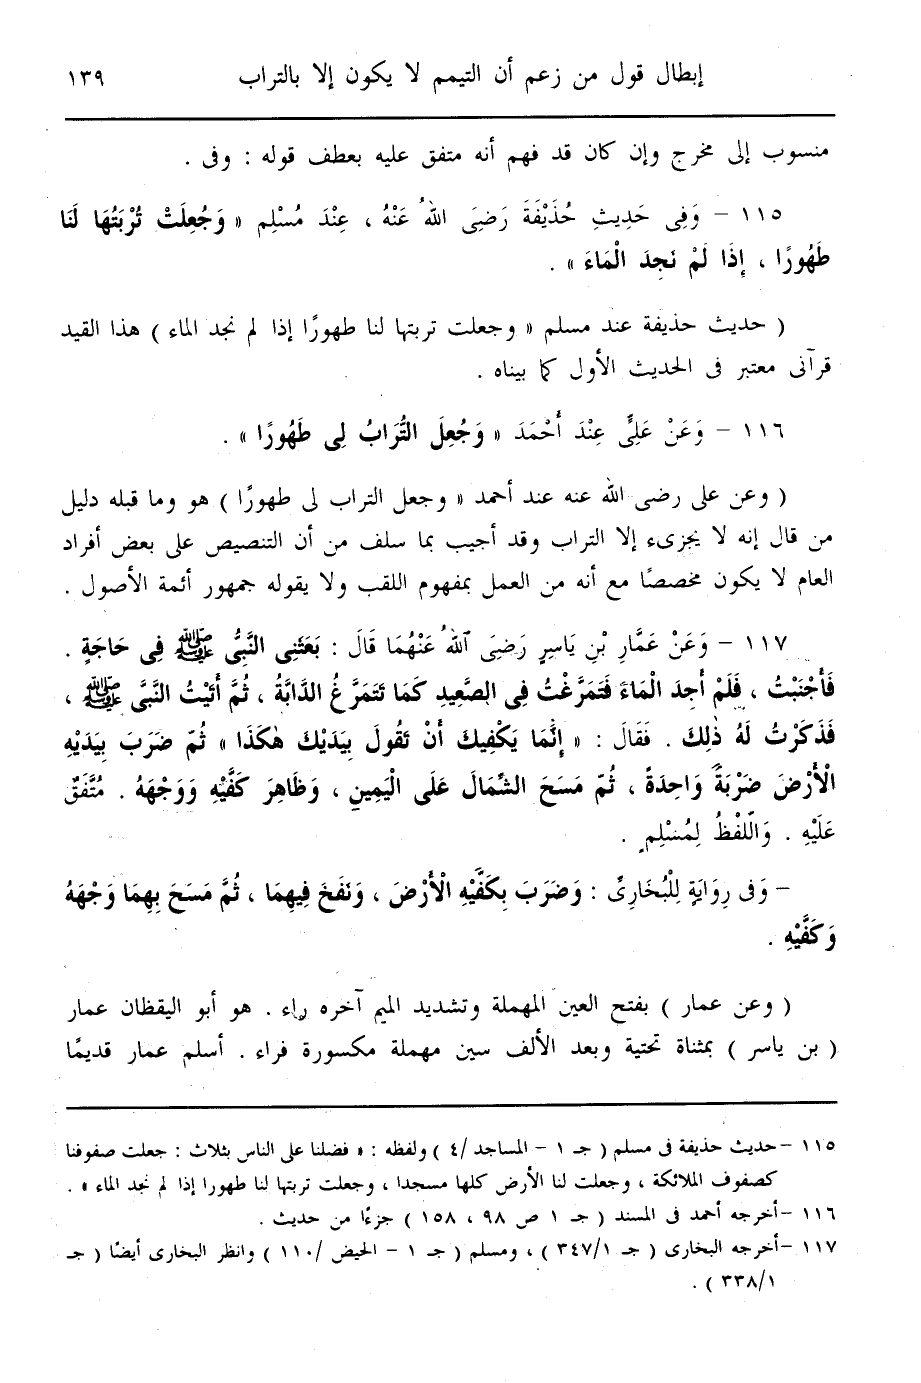 إبطال قول من زعم أن التيمم لا يكون إلا بالتراب ١٣٩
منسوب إلى مخرج وإن كان قد فهم أنه متفق عليه بعطف قوله : وفى .
١١٥ – وَفِى حَدِيثِ حُذَيْفَةَ رَضِىَ اللهُ عَنْهُ ، عِنْدَ مُسْلِم « وَجُعِلَتْ تُرْبَتُهَا لَنَا
طَهُورًا ، إِذَا لَمْ نَجِدَ الْمَاءَ » .
( حديث حذيفة عند مسلم « وجعلت تربتها لنا طهورًا إذا لم نجد الماء ) هذا القيد
قرآنى معتبر فى الحديث الأول كما بيناه .
١١٦ – وَعَنْ عَلِىٍّ عِنْدَ أَحْمَدَ « وَجُعِلَ التُّرَابُ لِى طَهُورًا » .
( وعن على رضى الله عنه عند أحمد « وجعل التراب لى طهورًا ) هو وما قبله دليل
من قال إنه لا يجزىء إلا التراب وقد أجيب بما سلف من أن التنصيص على بعض أفراد
العام لا يكون مخصصًا مع أنه من العمل بمفهوم اللقب ولا يقوله جمهور أئمة الأصول .
١١٧ – وَعَنْ عَمَّارِ بْنِ يَاسِرٍ رَضِىَ ٱللهُ عَنْهُمَا قَالَ : بَعَثَنِى النَّبِىُّ ﷺ فِى حَاجَةٍ .
فَأَجْنَبْتُ ، فَلَمْ أَجِدِ الْمَاءَ فَتَمَرَّغْتُ فِى الصَّعِيدِ كَمَا تَتَمَرَّغُ الدَّابَّةُ ، ثُمَّ أَتَيْتُ النَّبِىَّ ﷺ ،
فَذَكَرْتُ لَهُ ذٰلِكَ . فَقَالَ : « إِنَّمَا يَكْفِيكَ أَنْ تَقُولَ بِيَدَيْكَ هٰكَذَا » ثُمّ ضَرَبَ بِيَدَيْهِ
الْأَرْضَ ضَرْبَةً وَاحِدَةً ، ثُمّ مَسَحَ الشِّمَالَ عَلَى الْيَمِينِ ، وَظَاهِرَ كَفَّيْهِ وَوَجْهَهُ . مُتَّفَقٌ
عَلَيْهِ . وَاللَّفْظُ لِمُسْلِمٍ .
– وَفِى رِوَايَةٍ لِلْبُخَارِىِّ : وَضَرَبَ بِكَفَّيْهِ الْأَرْضَ ، وَنَفَخَ فِيهِمَا ، ثُمَّ مَسَحَ بِهِمَا وَجْهَهُ
وَكَفَّيْهِ .
( وعن عمار ) بفتح العين المهملة وتشديد الميم آخره راء . هو أبو اليقظان عمار
( بن ياسر ) بمثناة تحتية وبعد الألف سين مهملة مكسورة فراء . أسلم عمار قديمًا
١١٥ –حديث حذيفة فى مسلم ( جـ ١ – المساجد /٤ ) ولفظه : « فضلنا على الناس بثلاث : جعلت صفوفنا
كصفوف الملائكة ، وجعلت لنا الأرض كلها مسجدا ، وجعلت تربتها لنا طهورا إذا لم نجد الماء » .
١١٦ –أخرجه أحمد فى المسند ( جـ ١ ص ٩٨ ، ١٥٨ ) جزءًا من حديث .
١١٧ –أخرجه البخارى ( جـ ٣٤٧/١ ) ، ومسلم ( جـ ١ – الحيض /١١٠ ) وانظر البخارى أيضًا ( جـ
٣٣٨/١ ) .